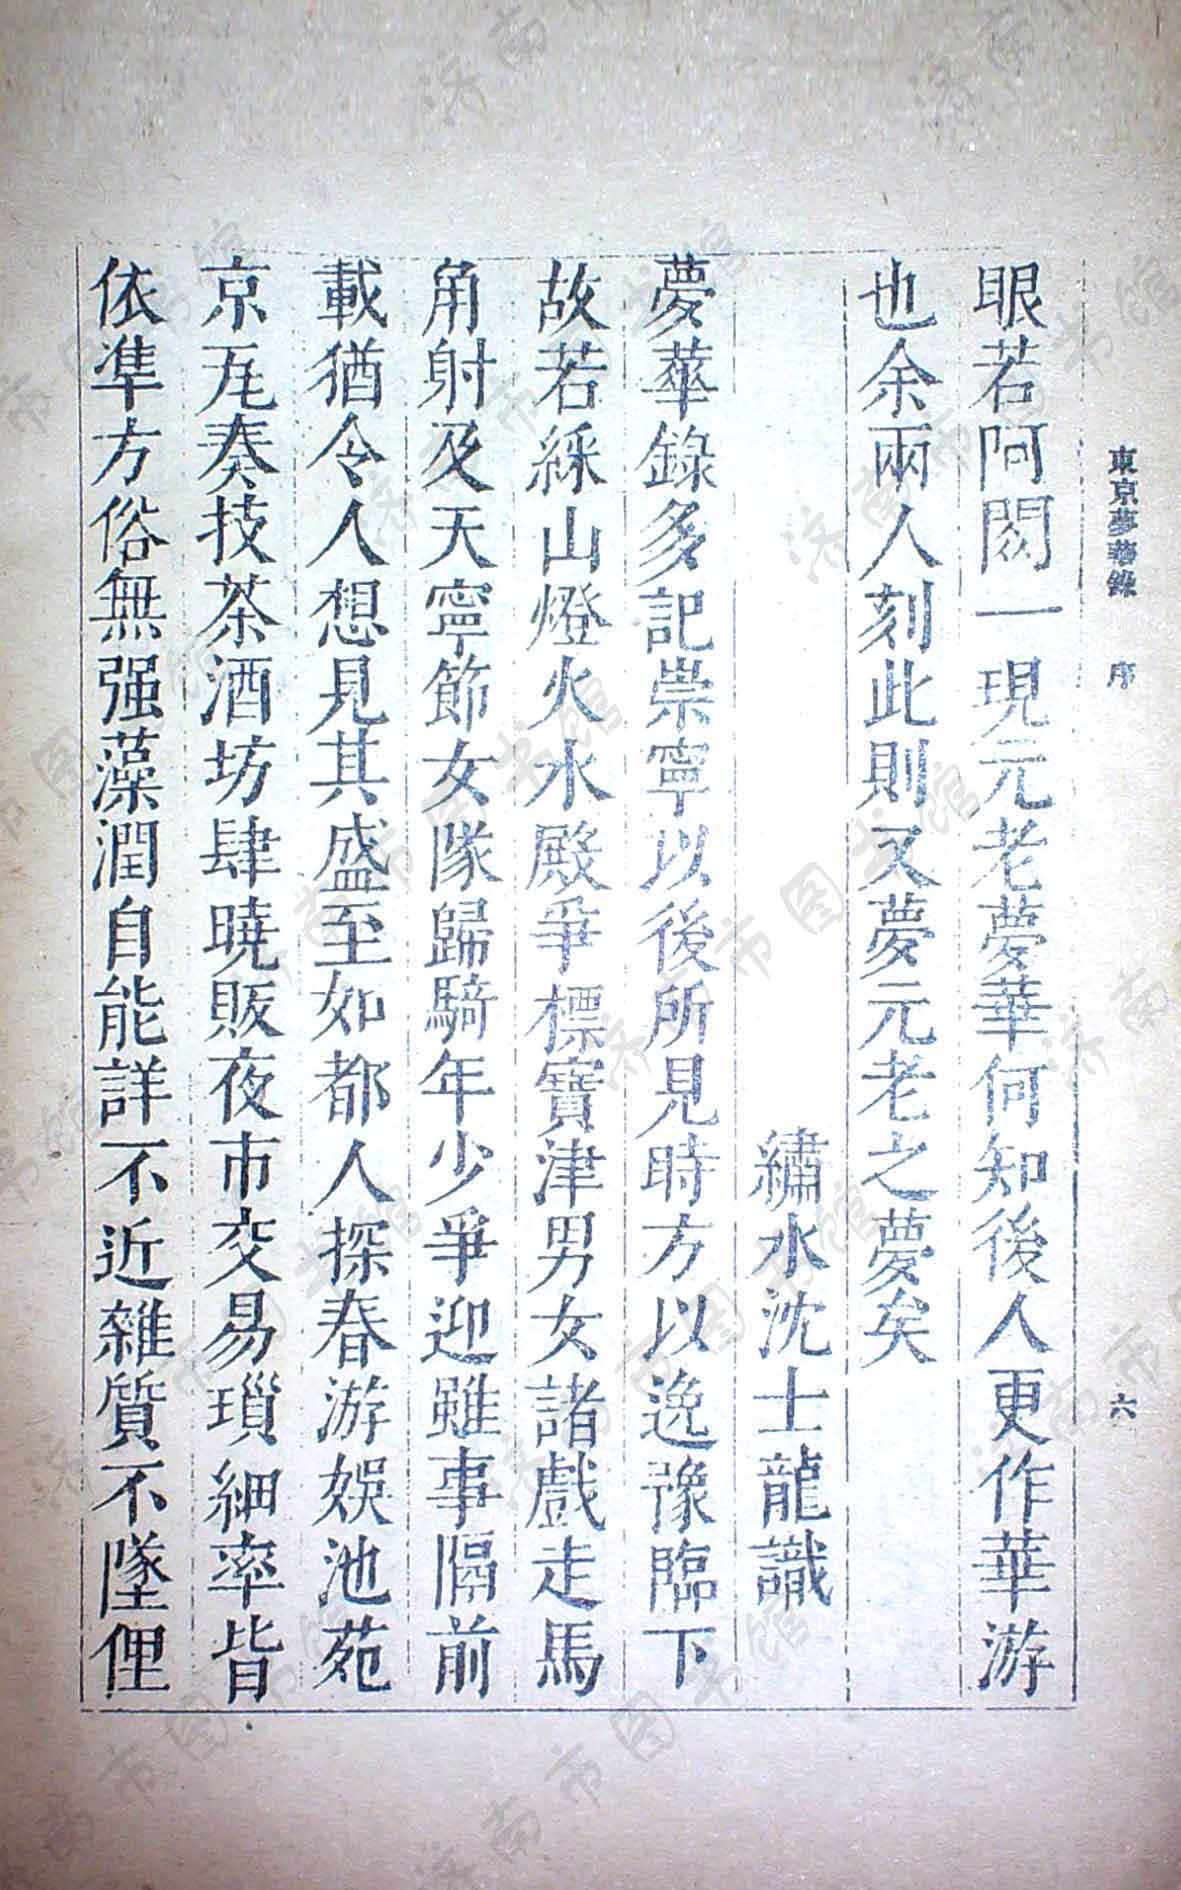 東京夢華錄 序 六
眼若阿閦一現元老夢華何知後人更作華游
也余兩人刻此則又夢元老之夢矣
繡水沈士龍識
夢華錄多記崇寧以後所見時方以逸豫臨下
故若綵山燈火水殿爭標寶津男女諸戲走馬
角射及天寧節女隊歸騎年少爭迎雖事隔前
載猶令人想見其盛至如都人探春游娛池苑
京瓦奏技茶酒坊肆曉販夜市交易瑣細率皆
依準方俗無强藻潤自能詳不近雜質不墜俚
济南市图书馆